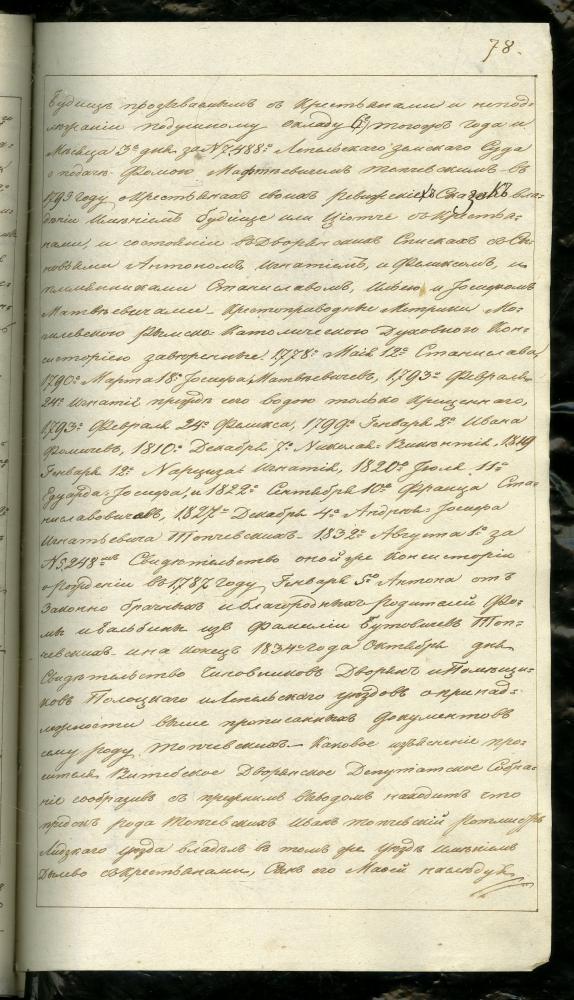 78.
Будищъ продѣваемымъ съ крестьянами и непод-
лѣжаніи подушному окладу 6го тогожъ года и
Мѣсяца 3го дня за №7,488м Лепельскаго земскаго Суда
о подачѣ Фомою Матѣевичемъ Топчевскимъ въ
1795 году о крестьянахъ своихъ ревижскихъ Сказокъ вла-
дѣніи имѣніемъ Будище или Цютче съ крестья-
нами, и состояніи въ Дворянскихъ Спискахъ съ Сы-
новьями Антономъ, Игнатіемъ, и Феликсомъ, и
племянниками Станиславомъ, Ильею и Іосифомъ
Матвѣевичами. Крестоприводныя Метрики Мо-
гилевскою Римско-Католическою Духовною Кон-
систоріею завѣренные: 1778го Маія 12го Станислава,
1790го Марта 18го Іосифа Матвѣевичевъ, 1793го Февраля
24го Игнатія предъ сего водою только крещеннаго,
1793го Февраля 24го Феликса, 1799го Генваря 2го Ивана
Фомичевъ, 1810го Декабря 7го Николая-Викентія, 1819
Генваря 12го Нарциза-Игнатія, 1820го Іюля 11го
Эдуарда-Іосифа, и 1822го Сентября 10го Франца Ста-
ниславовичевъ, 1827го Декабря 4го Андрея-Іосифа
Игнатьевича Топчевскихъ- 1832го Августа 1го за
№5,248мъ Свидѣтельство оной же Консисторіи
о рожденіи въ 1787 году Генваря 5го Антона отъ
Законно брачныхъ и благородныхъ родителей Фо-
мы и Бальбины изъ фамиліи Бутовичевъ Топ-
чевскихъ- и на конецъ 1834го года Октября дня
Свидѣтельство Чиновниковъ Дворянъ и Помѣщи-
ковъ Полоцкаго и Лепельскаго уѣздовъ о принад-
лѣжности выше прописанныхъ документовъ
сему роду Топчевскихъ- Каковое изъясненіе про-
сителя Витебское Дворянское Депутатское Собра-
ніе сообразивъ съ прежнимъ выводомъ находитъ что
предокъ рода Топчевскихъ Иванъ Топчевскій Ротмистръ
Лидзкаго уѣзда владѣлъ въ томъ же уѣздѣ имѣніемъ
Дылево съ крестьянами, Сынъ его Маѳей наслѣдуя